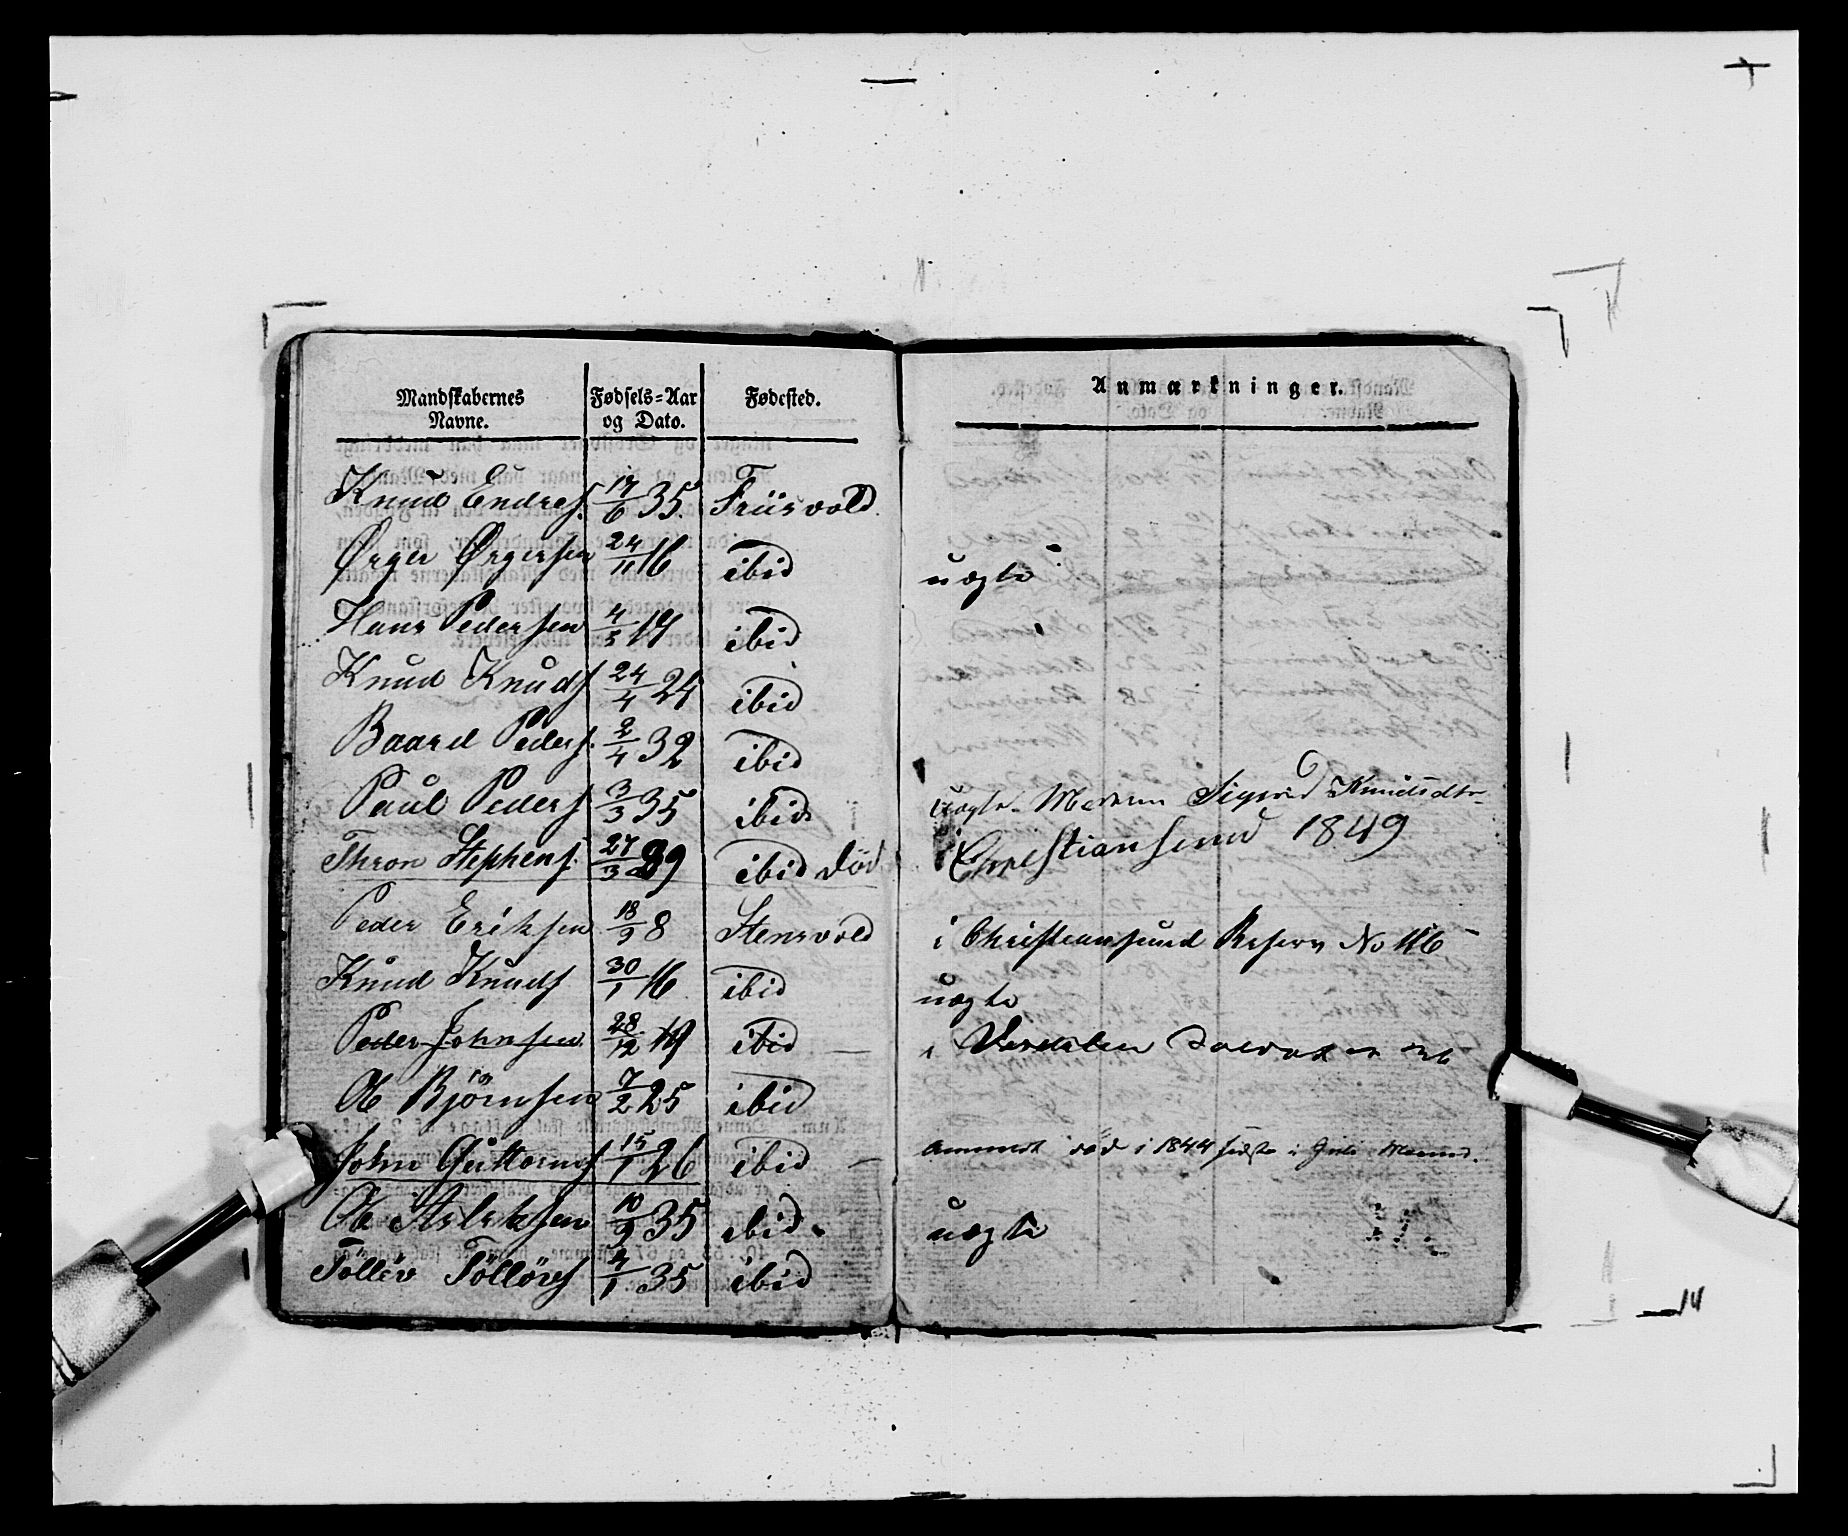 Mandskabernes Navne. Fødsels-Aar og Dato. Fødested.
Knud Endres. 17/6 35. Friisvold.
Ørger Ørgersen 24/11 16 ibid
Hans Pedersen 4/5 17 ibid
Knud Knuds 24/4 24 ibid
Baard Peders. 2/4 32 ibid
Paul Peders 3/3 35 ibid
Thron Stephens. 27/3 39 ibid död
Peder Eriksen 18/9 8 Stensvold
Knud Knuds 30/1 16 ibid
Peder Johnsen 28/12 19 ibid —
Ole Björnsen 7/2 25 ibid
John Guttorms 15/1 26 ibid —
Ole Aslaksen 10/9 35 ibid.
Töllöv Töllövs 4/1 35 ibid
Anmærkninger.
uægte
uægte Moderen Sigrid Knudsdtr
i Christiansund 1849
i Christiansund Reserv No 116
uægte
i
död i 1844 sidste i
uægte
14